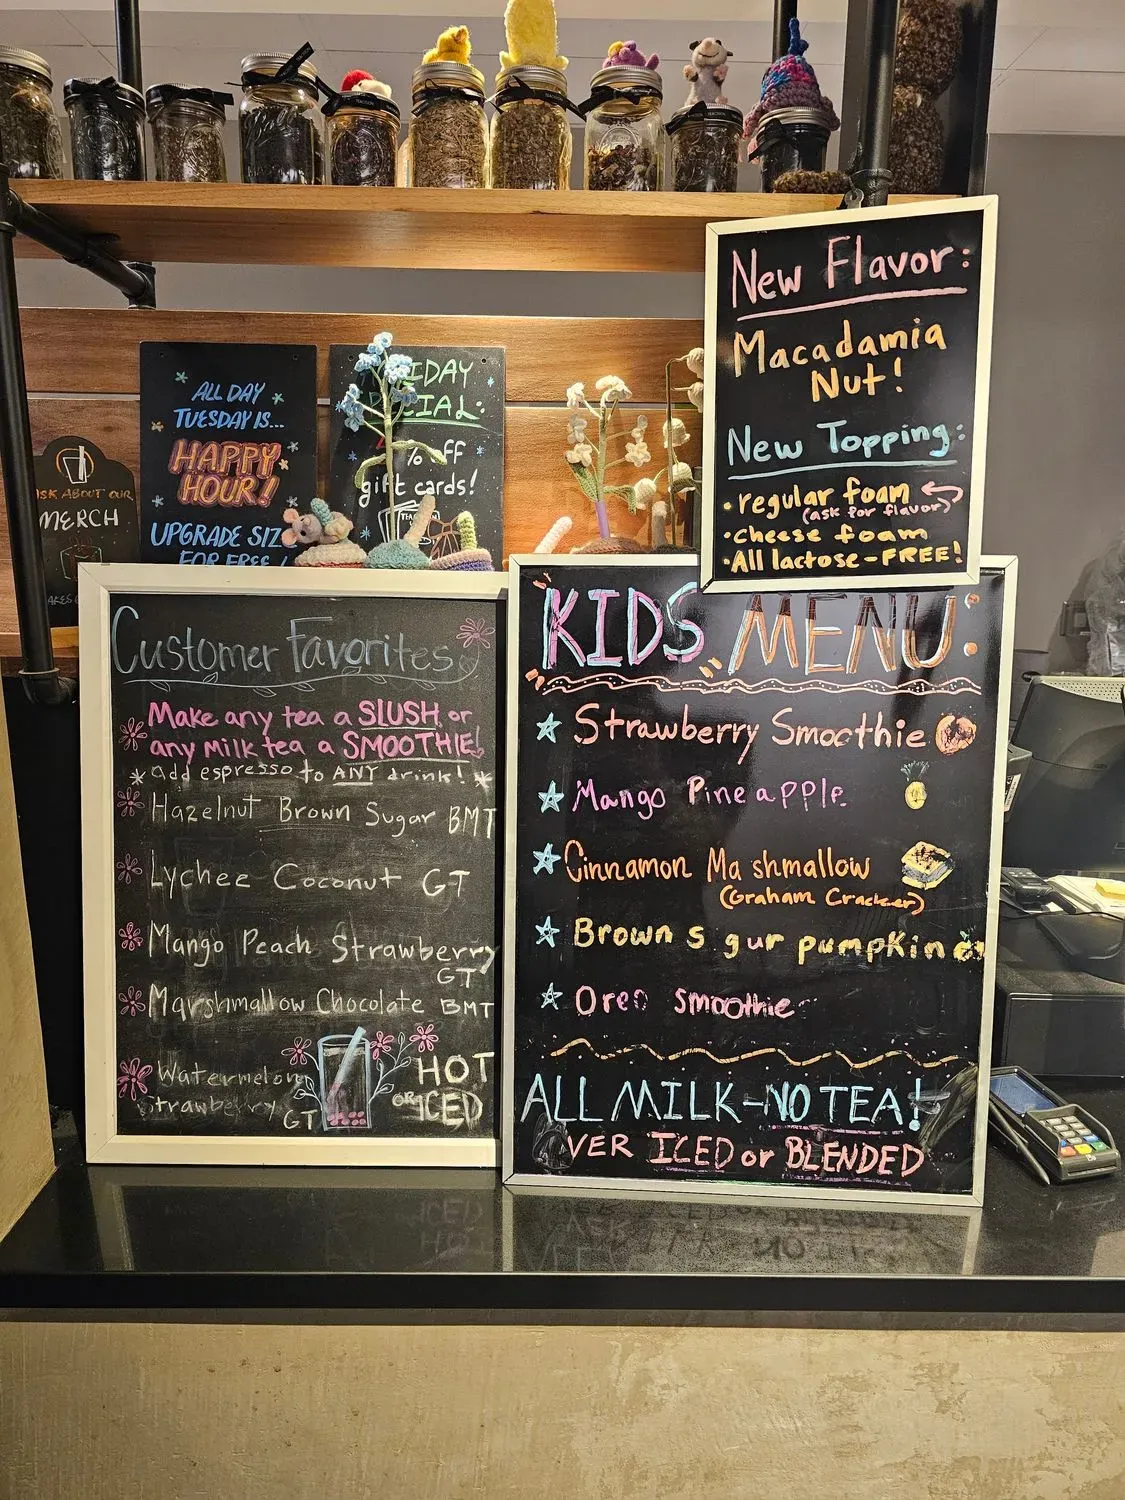 ALL DAY
TUESDAY IS...
HAPPY
HOUR!
UPGRADE SIZE
FOR FREE!
SPECIAL:
% OFF
gift cards!
ASK ABOUT OUR
MERCH
New Flavor:
Macadamia
Nut!
New Topping:
• regular foam
(ask for flavor)
• cheese foam
• All lactose-FREE!
Customer Favorites
Make any tea a SLUSH or
any milk tea a SMOOTHIE!
* add espresso to ANY drink! *
Hazelnut Brown Sugar BMT
Lychee Coconut GT
Mango Peach Strawberry
GT
Marshmallow Chocolate BMT
Watermelon
Strawberry
GT
HOT
OR ICED
KIDS MENU:
Strawberry Smoothie
Mango Pineapple
Cinnamon Ma shmallow
(Graham Cracker)
Brown s gur pumpkin
Oreo smoothie
ALL MILK-NO TEA!
VER ICED or BLENDED